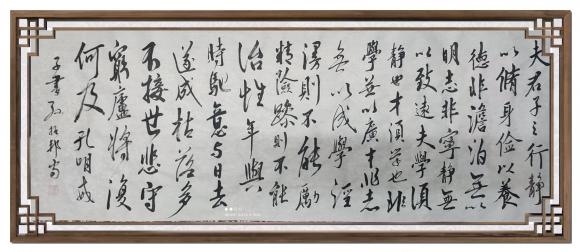 夫君子之行靜
以脩身儉以養
德非澹泊無以
明志非寧靜無
以致遠夫學須
靜也才須學也非
學無以廣才非志
無以成學淫
漫則不能勵
精險躁則不能
治性年與
時馳意与日去
遂成枯落多
不接世悲守
窮廬將復
何及孔明戒
子書